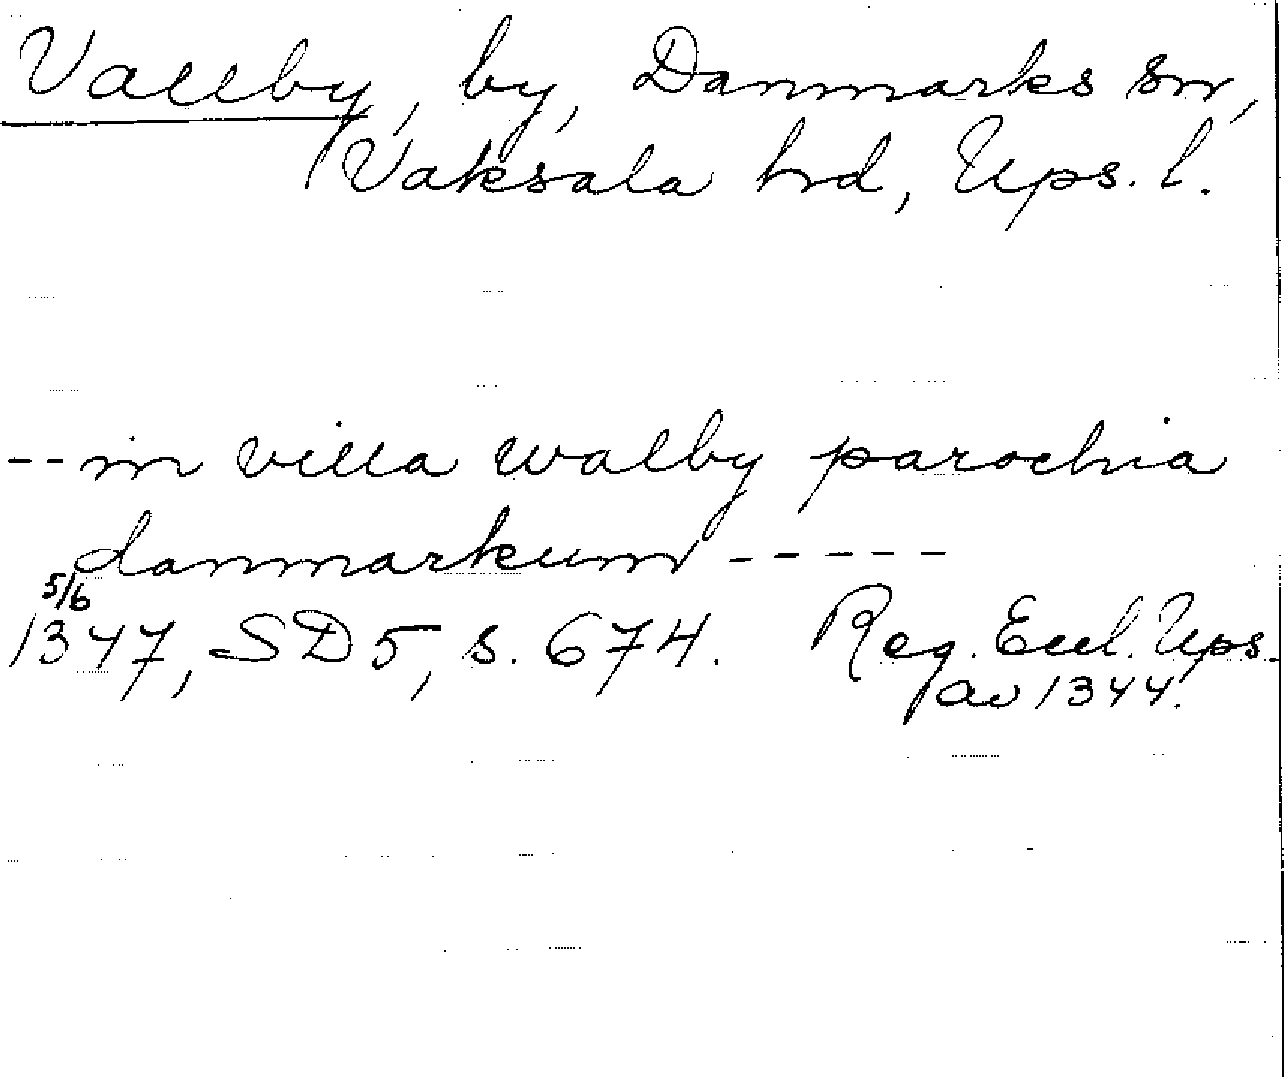 Vallby, by, Danmarks sn,
Vaksala hd, Ups. l.
-- in villa walby parochia
danmarkum -----
5/6
1347, SD 5, s. 674. Reg. Eccl. Ups.
av 1344.